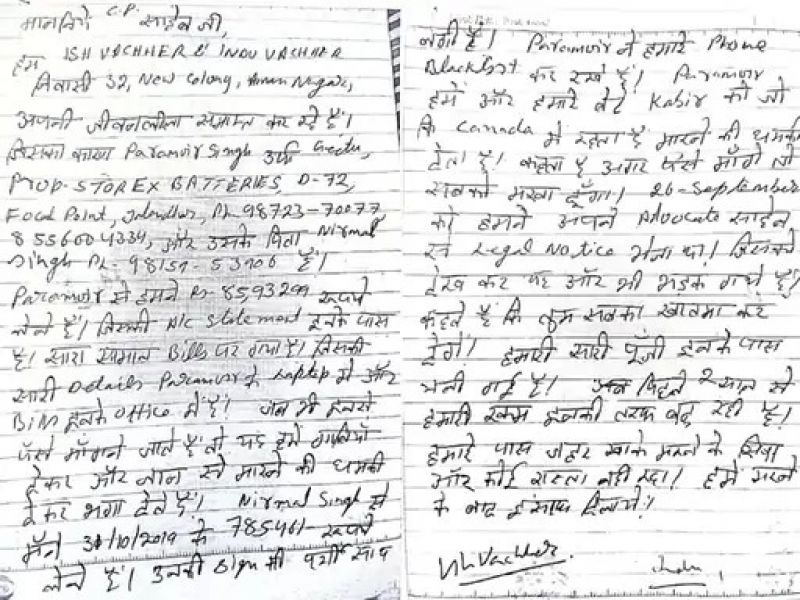 माननीय C.P. साहेब जी,
हम ISH VACHHER & INDU VACHHER
निवासी 32, New Colony, Aman Nagar,
अपनी जीवनलीला समाप्त कर रहे हैं।
जिसका कारण Paramvir Singh उर्फ
PROP. STOREX BATTERIES, D-72,
Focal Point, Jalandhar, Ph. 98723-70077,
8556004334, और उसके पिता Nirmal
Singh Ph.
Paramvir से हमने Rs 8593299 रूपये
लेने हैं। जिसकी A/c Statement इनके पास
है। सारा सामान Bills पर गया है। जिसकी
सारी Details Paramvir के Laptop में और
Bill इनके office में है। जब भी इनसे
पैसे माँगने जाते हैं तो यह हमें गालियाँ
देकर और जान से मारने की धमकी
देकर भगा देते हैं। Nirmal Singh से
मैंने 31/10/2019 के 785461 रूपये
लेने हैं। उनकी Sign भी पर्ची साथ
लगी है। Paramvir ने हमारे Phone
Blacklist कर रखे हैं। Paramvir
हमें और हमारे बेटे Kabir को जो
कि Canada में रहता है मारने की धमकी
देता है। कहता है अगर पैसे माँगे तो
सबको मरवा दूँगा। 26-September
को हमने अपने Advocate साहेब
से Legal Notice भेजा था। जिसको
देख कर यह और भी भड़क गये हैं।
कहते हैं कि तुम सबका खातमा कर
देंगे। हमारी सारी पूँजी इनके पास
चली गई है। पिछले 2 साल से
हमारी रकम इनकी तरफ रही है।
हमारे पास जहर खाके मरने के सिवा
और कोई रास्ता नहीं रहा। हमें मरने
के बाद इंसाफ दिलायें।
Ish Vachher
Indu